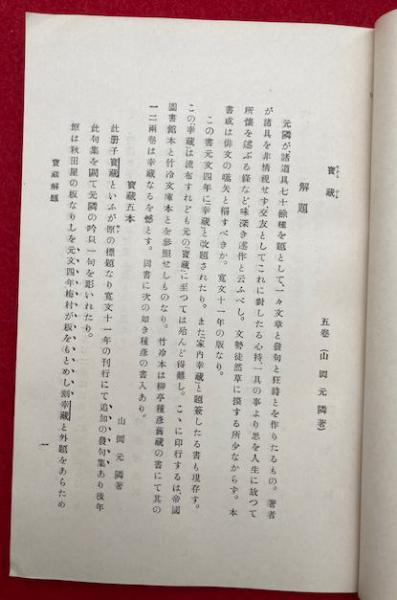 寶藏
たから
ぐら
五卷(山岡元隣著)
解題
元隣が、諸道具七十餘種を題として、一々文章と發句と狂詩とを作りたるもの。著者
が諸具を非情視せず、交友としてこれに對したる心持、一具の事より思を人生に放つて
所懷を述ぶる條など味深き述作と云ふべし。文勢徒然草に摸する所少なからず。本
書或は俳文の嚆矢と稱すべきか。寛文十一年の版なり。
この書元文四年に「幸藏」と改題されたり。また「家內幸藏」と題簽したる書も現存す。
この「幸藏」は流布すれども元の「寶藏」に至つては殆んど得難し。こゝに印行するは、帝國
圖書館本と竹冷文庫本とを參照せしものなり。竹冷本は柳亭種彥舊藏の書にて其の
一二兩卷は幸藏なるを憾とす。同書に次の如き種彥の書入あり。
寶藏五本
山岡元隣著
此册子寶藏といふが原の標題なり寛文十一年の刊行にて追加の發句集あり後年
此句集を闕て元隣の吟只一句を彫いれたり。
原は秋田屋の板なりしを元文四年梅村が板をもとめし刻幸藏と外題をあらため
寶藏解題
一